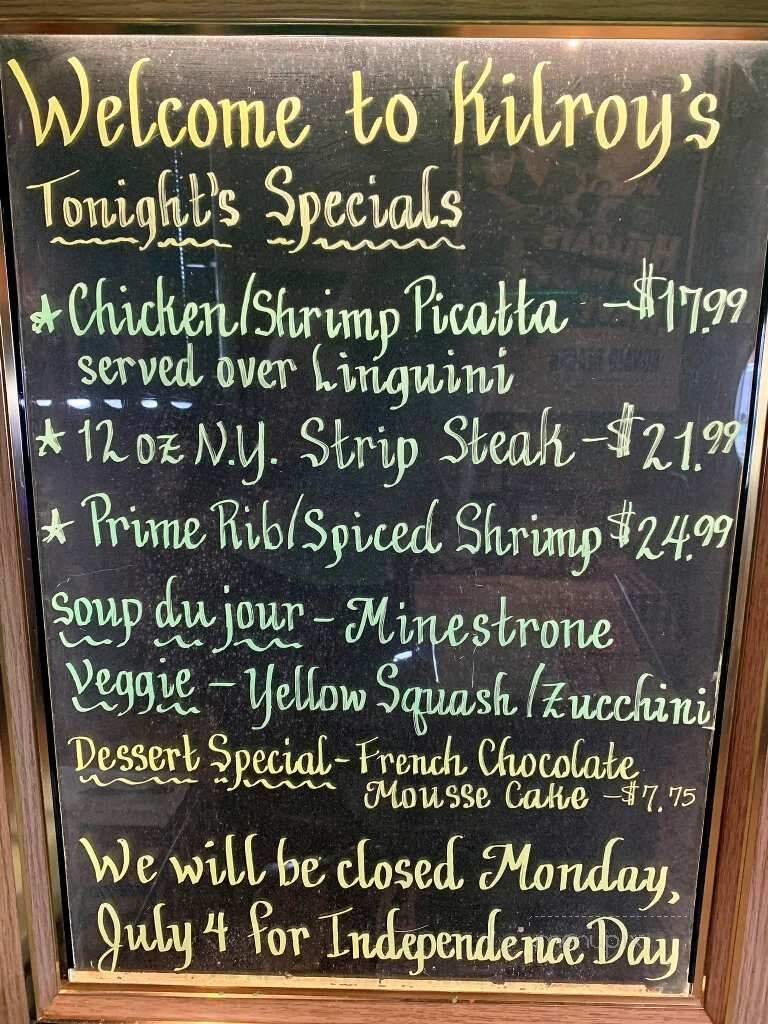 Welcome to Kilroy's
Tonight's Specials
★ Chicken/Shrimp Picatta - $17.99
served over Linguini
★ 12 oz N.Y. Strip Steak - $21.99
★ Prime Rib/Spiced Shrimp $24.99
Soup du jour - Minestrone
Veggie - Yellow Squash/Zucchini
Dessert Special - French Chocolate
Mousse Cake - $7.75
We will be closed Monday,
July 4 for Independence Day